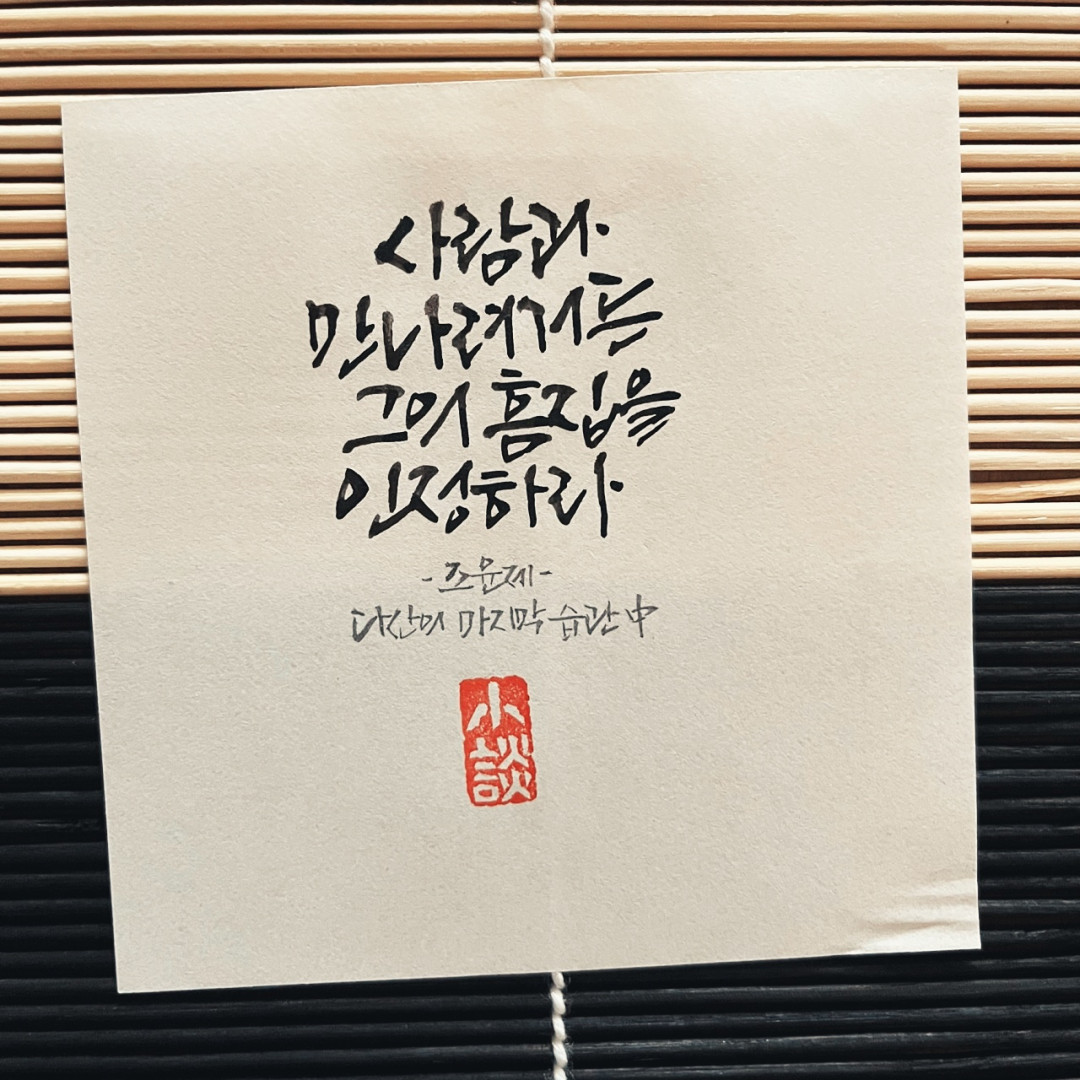 사람과
만나려거든
그의 흠집을
인정하라
-조윤제-
다산의 마지막 습관 中
小
談